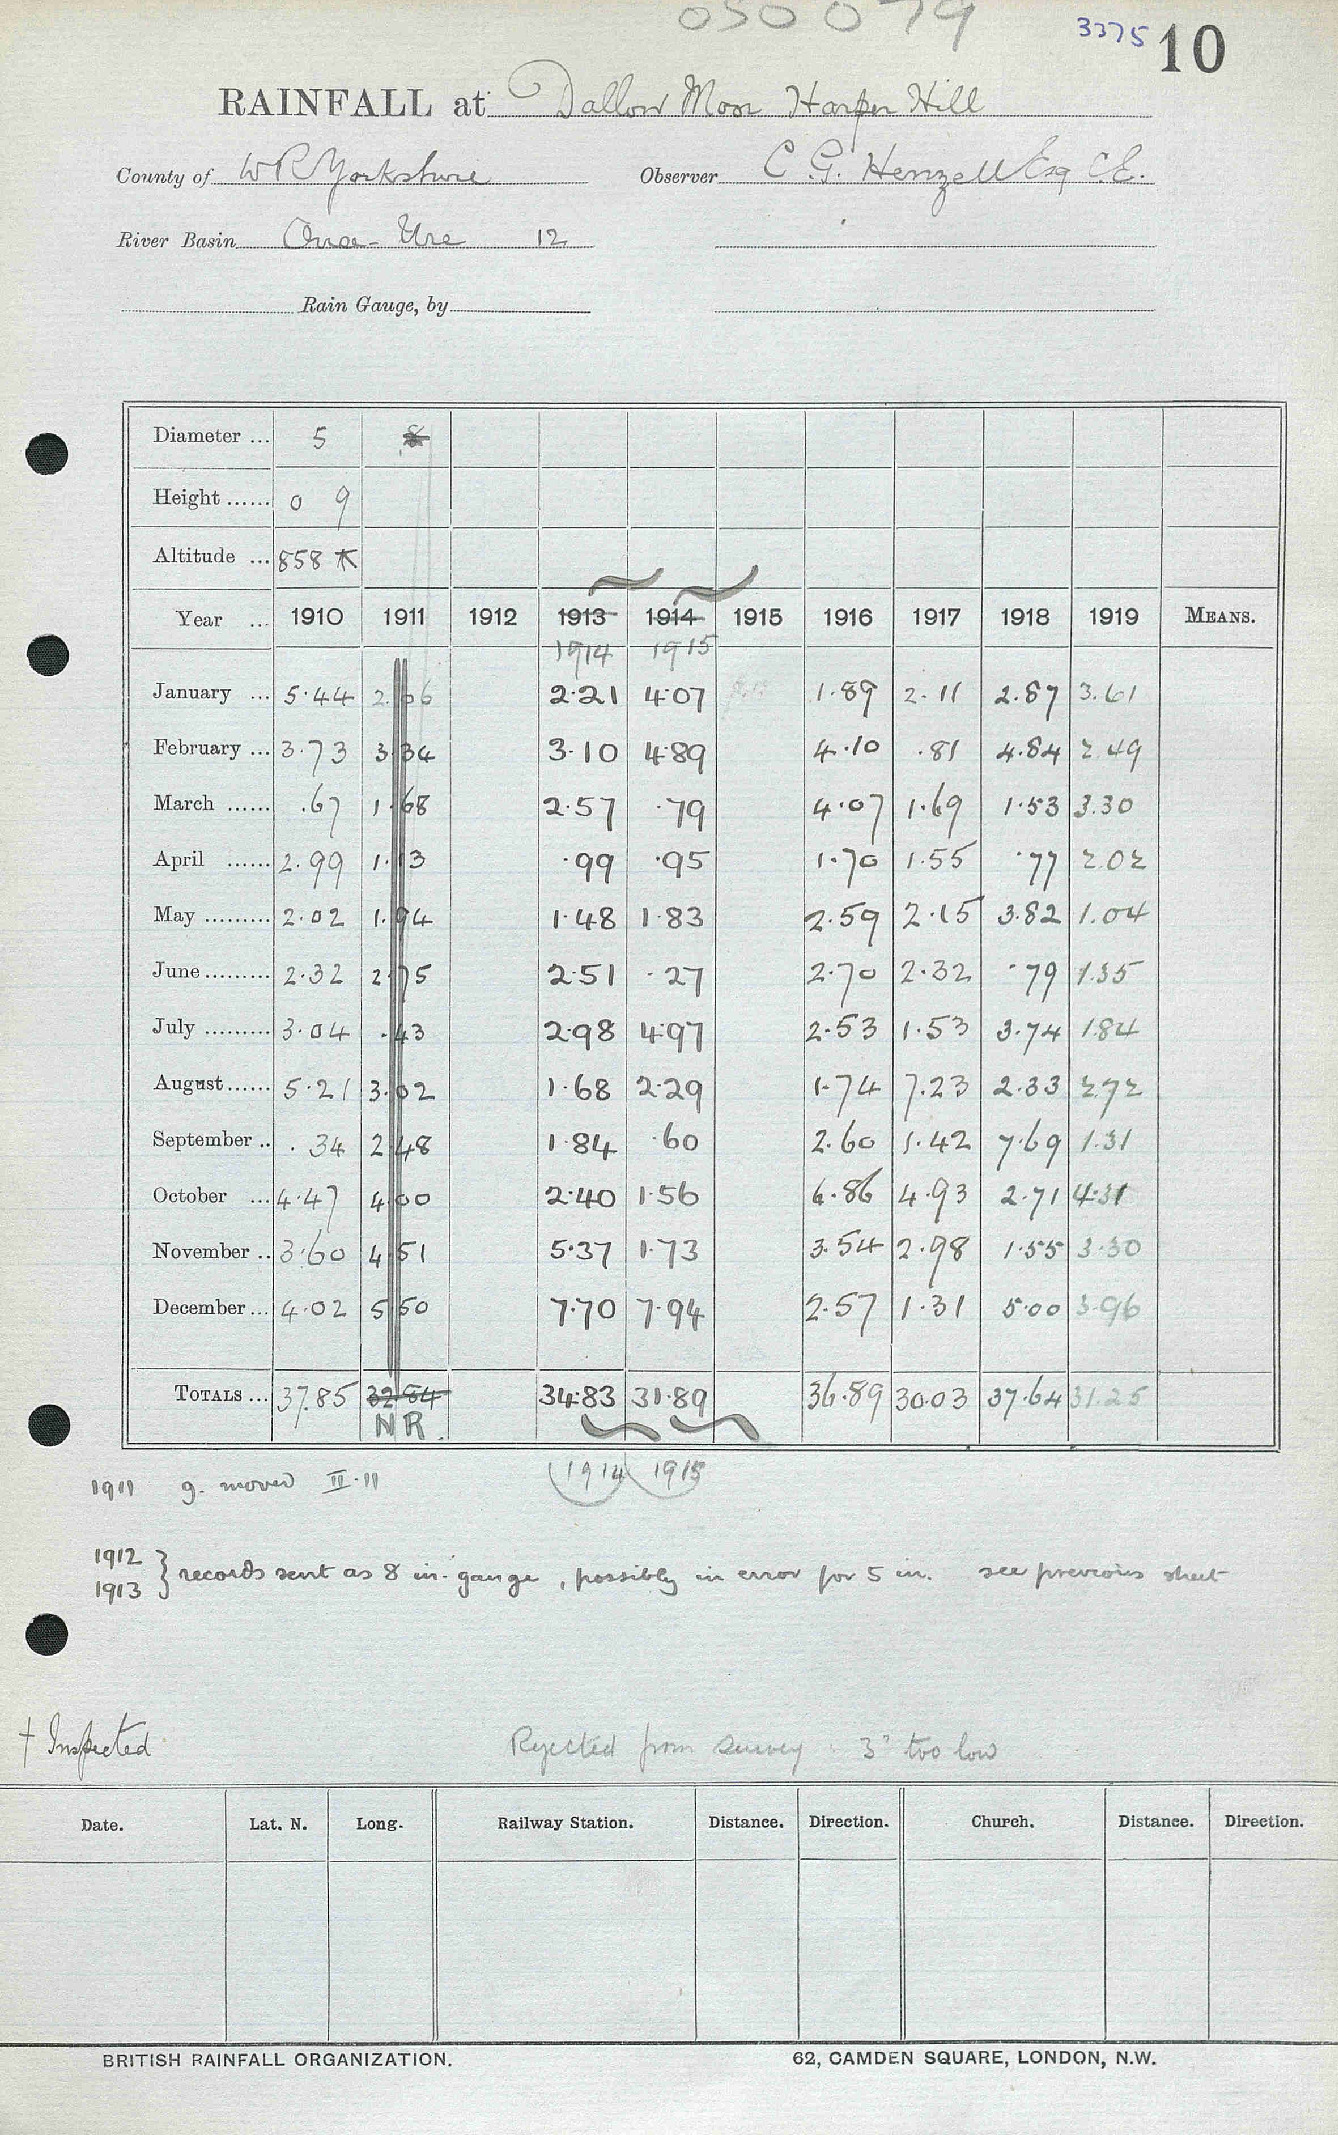 050079
3375 10
RAINFALL at Dallow Moor Harper Hill
County of W R Yorkshire Observer C. G. Henzell Esq C.E.
River Basin Ouse - Ure 12
Rain Gauge, by
Diameter ... 5 8
Height ...... 0 9
Altitude ... 858
Year ... 1910 1911 1912 1913 1914 1915 1916 1917 1918 1919 MEANS.
1914 1915
January ... 5.44 2.06 2.21 4.07 1.89 2.11 2.87 3.61
February ... 3.73 3.34 3.10 4.89 4.10 .81 4.84 2.49
March ...... .67 1.68 2.57 .79 4.07 1.69 1.53 3.30
April ...... 2.99 1.13 .99 .95 1.70 1.55 .77 2.02
May ......... 2.02 1.94 1.48 1.83 2.59 2.15 3.82 1.04
June ......... 2.32 2.75 2.51 .27 2.70 2.32 .79 1.35
July ......... 3.04 .43 2.98 4.97 2.53 1.53 3.74 1.84
August ...... 5.21 3.02 1.68 2.29 1.74 7.23 2.33 2.72
September .. .34 2.48 1.84 .60 2.60 1.42 7.69 1.31
October ... 4.47 4.00 2.40 1.56 6.86 4.93 2.71 4.31
November .. 3.60 4.51 5.37 1.73 3.54 2.98 1.55 3.30
December ... 4.02 5.50 7.70 7.94 2.57 1.31 5.00 3.96
TOTALS ... 37.85 32.84 34.83 31.89 36.89 30.03 37.64 31.25
NR.
(1914) (1915)
1911 g. moved II.11
1912
1913 } records sent as 8 in. gauge, possibly in error for 5 in. see previous sheet
† Inspected Rejected from survey 3" too low
Date. Lat. N. Long. Railway Station. Distance. Direction. Church. Distance. Direction.
BRITISH RAINFALL ORGANIZATION. 62, CAMDEN SQUARE, LONDON, N.W.